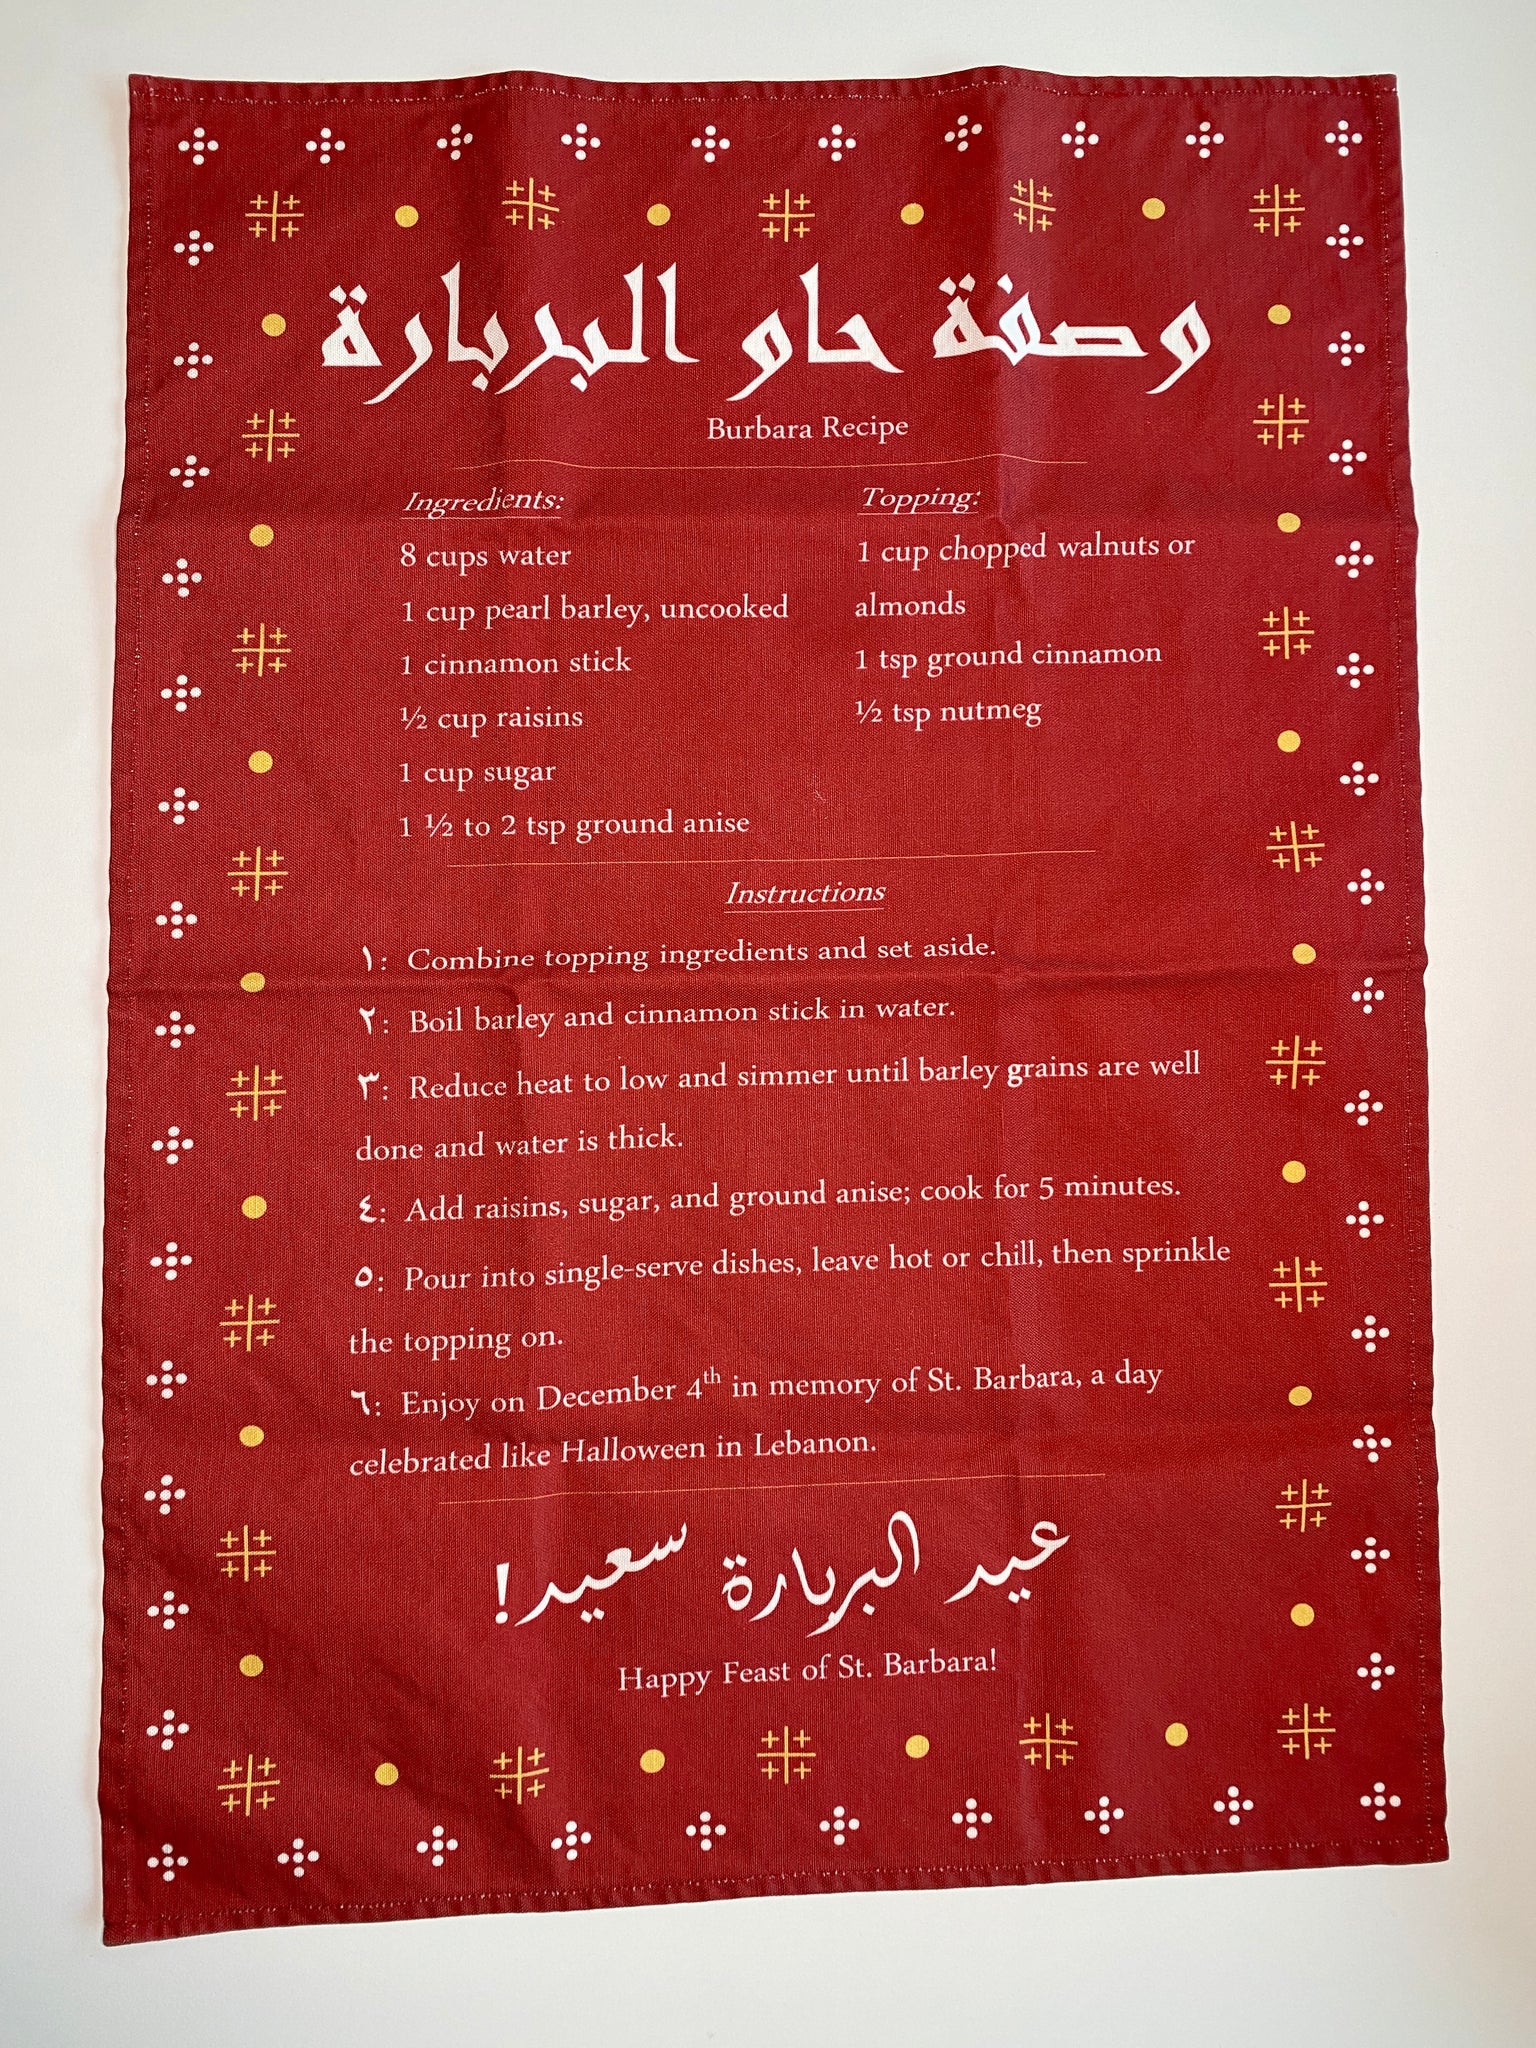 وصفة حلو البربارة
Burbara Recipe
Ingredients:
8 cups water
1 cup pearl barley, uncooked
1 cinnamon stick
½ cup raisins
1 cup sugar
1 ½ to 2 tsp ground anise
Topping:
1 cup chopped walnuts or
almonds
1 tsp ground cinnamon
½ tsp nutmeg
Instructions
١: Combine topping ingredients and set aside.
٢: Boil barley and cinnamon stick in water.
٣: Reduce heat to low and simmer until barley grains are well
done and water is thick.
٤: Add raisins, sugar, and ground anise; cook for 5 minutes.
٥: Pour into single-serve dishes, leave hot or chill, then sprinkle
the topping on.
٦: Enjoy on December 4th in memory of St. Barbara, a day
celebrated like Halloween in Lebanon.
عيد البربارة سعيد!
Happy Feast of St. Barbara!